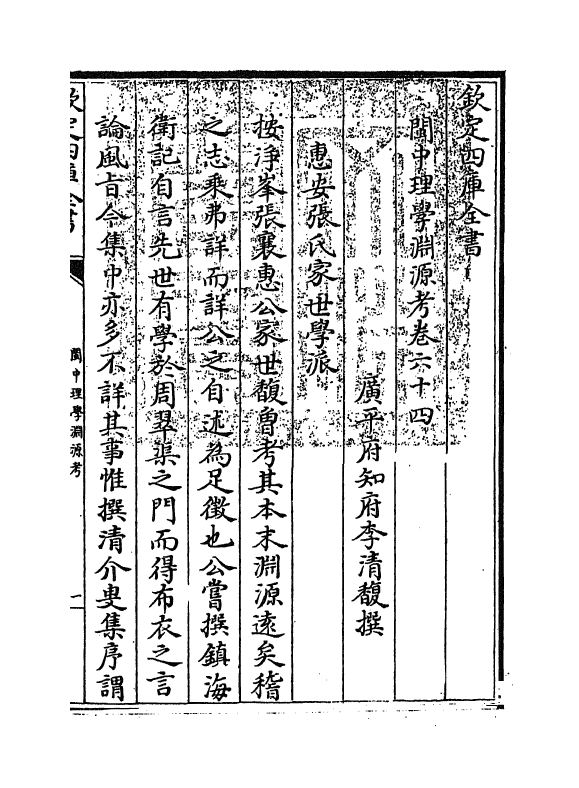 欽定四庫全書
閩中理學淵源考卷六十四
廣平府知府李清馥撰
惠安張氏家世學派
按淨峯張襄惠公家世馥魯考其本末淵源逺矣稽
之志乘弗詳而詳公之自述為足徵也公嘗撰鎮海
衛記自言先世有學於周翠渠之門而得布衣之言
論風㫖今集中亦多不詳其事惟撰清介叟集序謂
欽定四庫全書
閩中理學淵源考
一